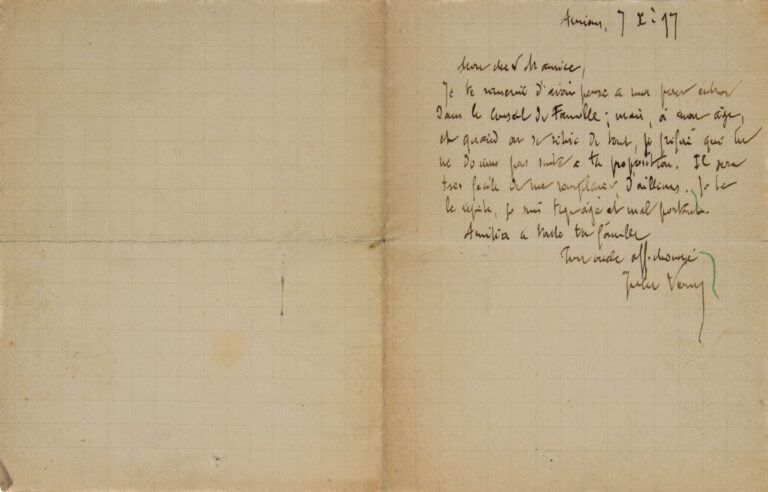 Amiens, 7 X: 97
Mon cher Maurice,
Je te remercie d'avoir pensé à moi pour entrer
dans le Conseil de Famille ; mais, à mon âge,
et quand on se retire de tout, je préfère que tu
ne donnes pas suite à ta proposition. Il sera
très facile de me remplacer, d'ailleurs. Je te
le répète, je suis trop âgé et mal portant.
Amitiés à toute ta famille
Ton oncle affectionné
Jules Verne